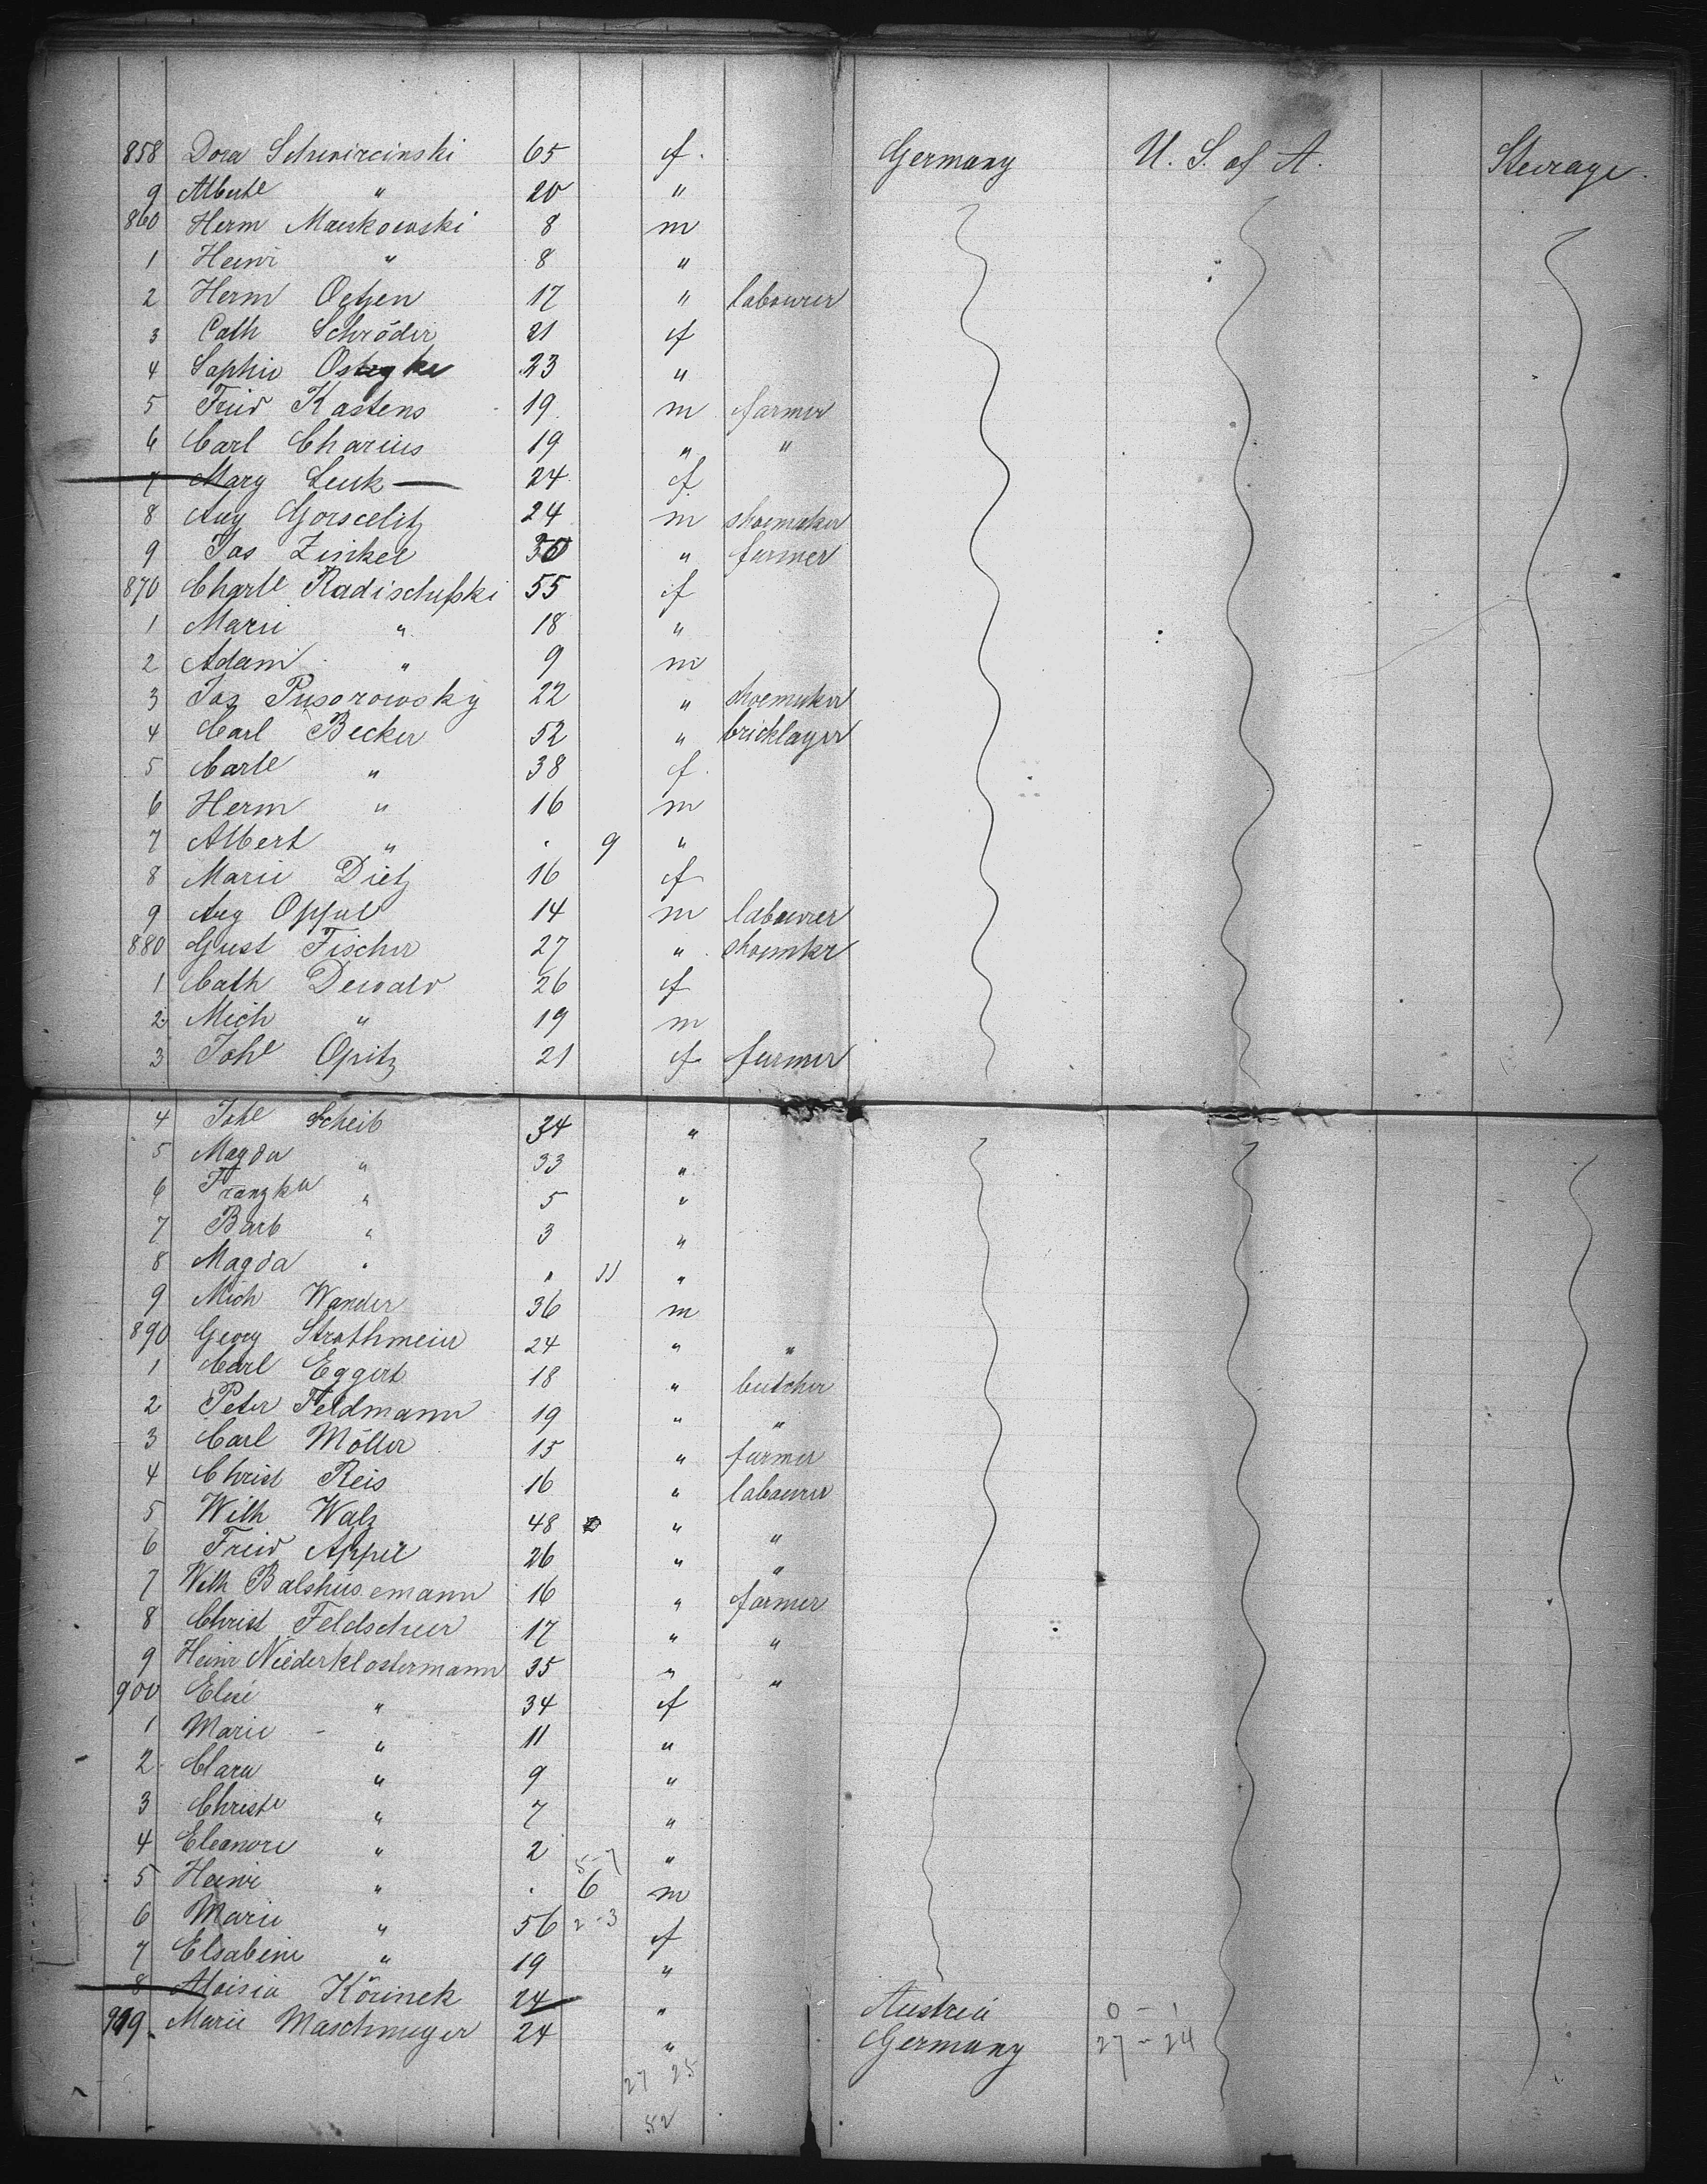 858 Dora Schwircinski 65 f. Germany U. S. of A. Steerage.
9 Alberte " 20 "
860 Herm Mankowski 8 m
1 Heinr " 8 "
2 Herm Oetzen 17 " labourer
3 Cath Schröder 21 f
4 Sophie 23 "
5 Fried Kastens 19 m farmer
6 Carl Charius 19 " "
7 Mary Leuk 24 f.
8 Aug Gorscelitz 24 m shoemaker
9 Jos Zinkel 30 " farmer
870 Charle Radischefski 55 f
1 Marie " 18 "
2 Adam " 9 m
3 Jos Pusorowsky 22 " shoemaker
4 Carl Becker 52 " bricklayer
5 Carle " 38 f.
6 Herm " 16 m
7 Albert " . 9 "
8 Marie Dietz 16 f
9 Aug Opful 14 m labourer
880 Gust Fischer 27 " shoemkr
1 Cath Dewald 26 f
2 Mich " 19 m
3 Johe Opitz 21 f farmer
4 Johe Scheib 34 "
5 Magda " 33 "
6 Franzka " 5 "
7 Barb " 3 "
8 Magda " " 11 "
9 Mich Wander 36 m
890 Georg Strathmeier 24 " "
1 Carl Eggert 18 " butcher
2 Peter Feldmann 19 " "
3 Carl Möller 15 " farmer
4 Christ Reis 16 " labourer
5 Wilh Walz 48 " "
6 Fried Appel 26 " "
7 Wilh Balshüsemann 16 " farmer
8 Christ Feldscheer 17 " "
9 Heinr Niederklostermann 35 " "
900 Elise " 34 f
1 Marie " 11 "
2 Clara " 9 "
3 Christe " 7 "
4 Eleanore " 2 "
5-7
5 Heinr " . 6 m
6 Marie " 56 2-3 f
7 Elsabein " 19 "
8 Aloisia Körinek 24 " Austria 0 - 1
909 Marie Maschmeyer 24 " Germany 27 - 24
27 25
52